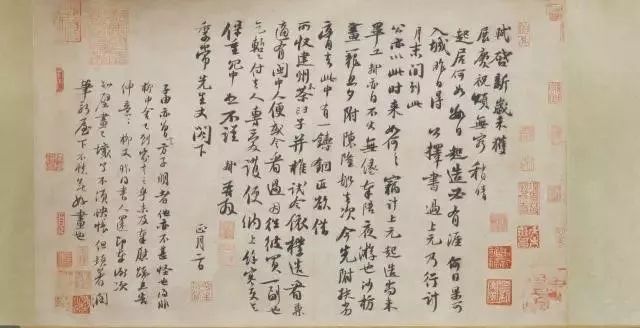 軾啟新歲未獲
展慶祝頌無窮稍晴
起居何如數日起造必有涯何日果可
入城昨日得 公擇書過上元乃行計
月末間到此
公亦以此時来如何竊計上元起造尚未
畢工軾亦自不出無緣奉陪夜游也沙枋
畫籠旦夕附陳隆船去次今先附扶劣
膏去此中有一鑄銅匠欲借
所收建州木茶臼子并椎試令依樣造看兼
適有閩中人便或令看過因往彼買一副也
乞暫付去人專愛護便納上餘寒更乞
保重冗中恕不謹 軾再拜
季常先生丈閣下
正月二日
子由亦曾言方子明者他亦不甚怪也得非
柳中舍已到家言之乎未及奉慰疏且告
伸意伸意柳丈昨得書人還即奉謝次
知壁畫已壞了不須怏悵但頓著潤
筆新屋下不愁無好畫也